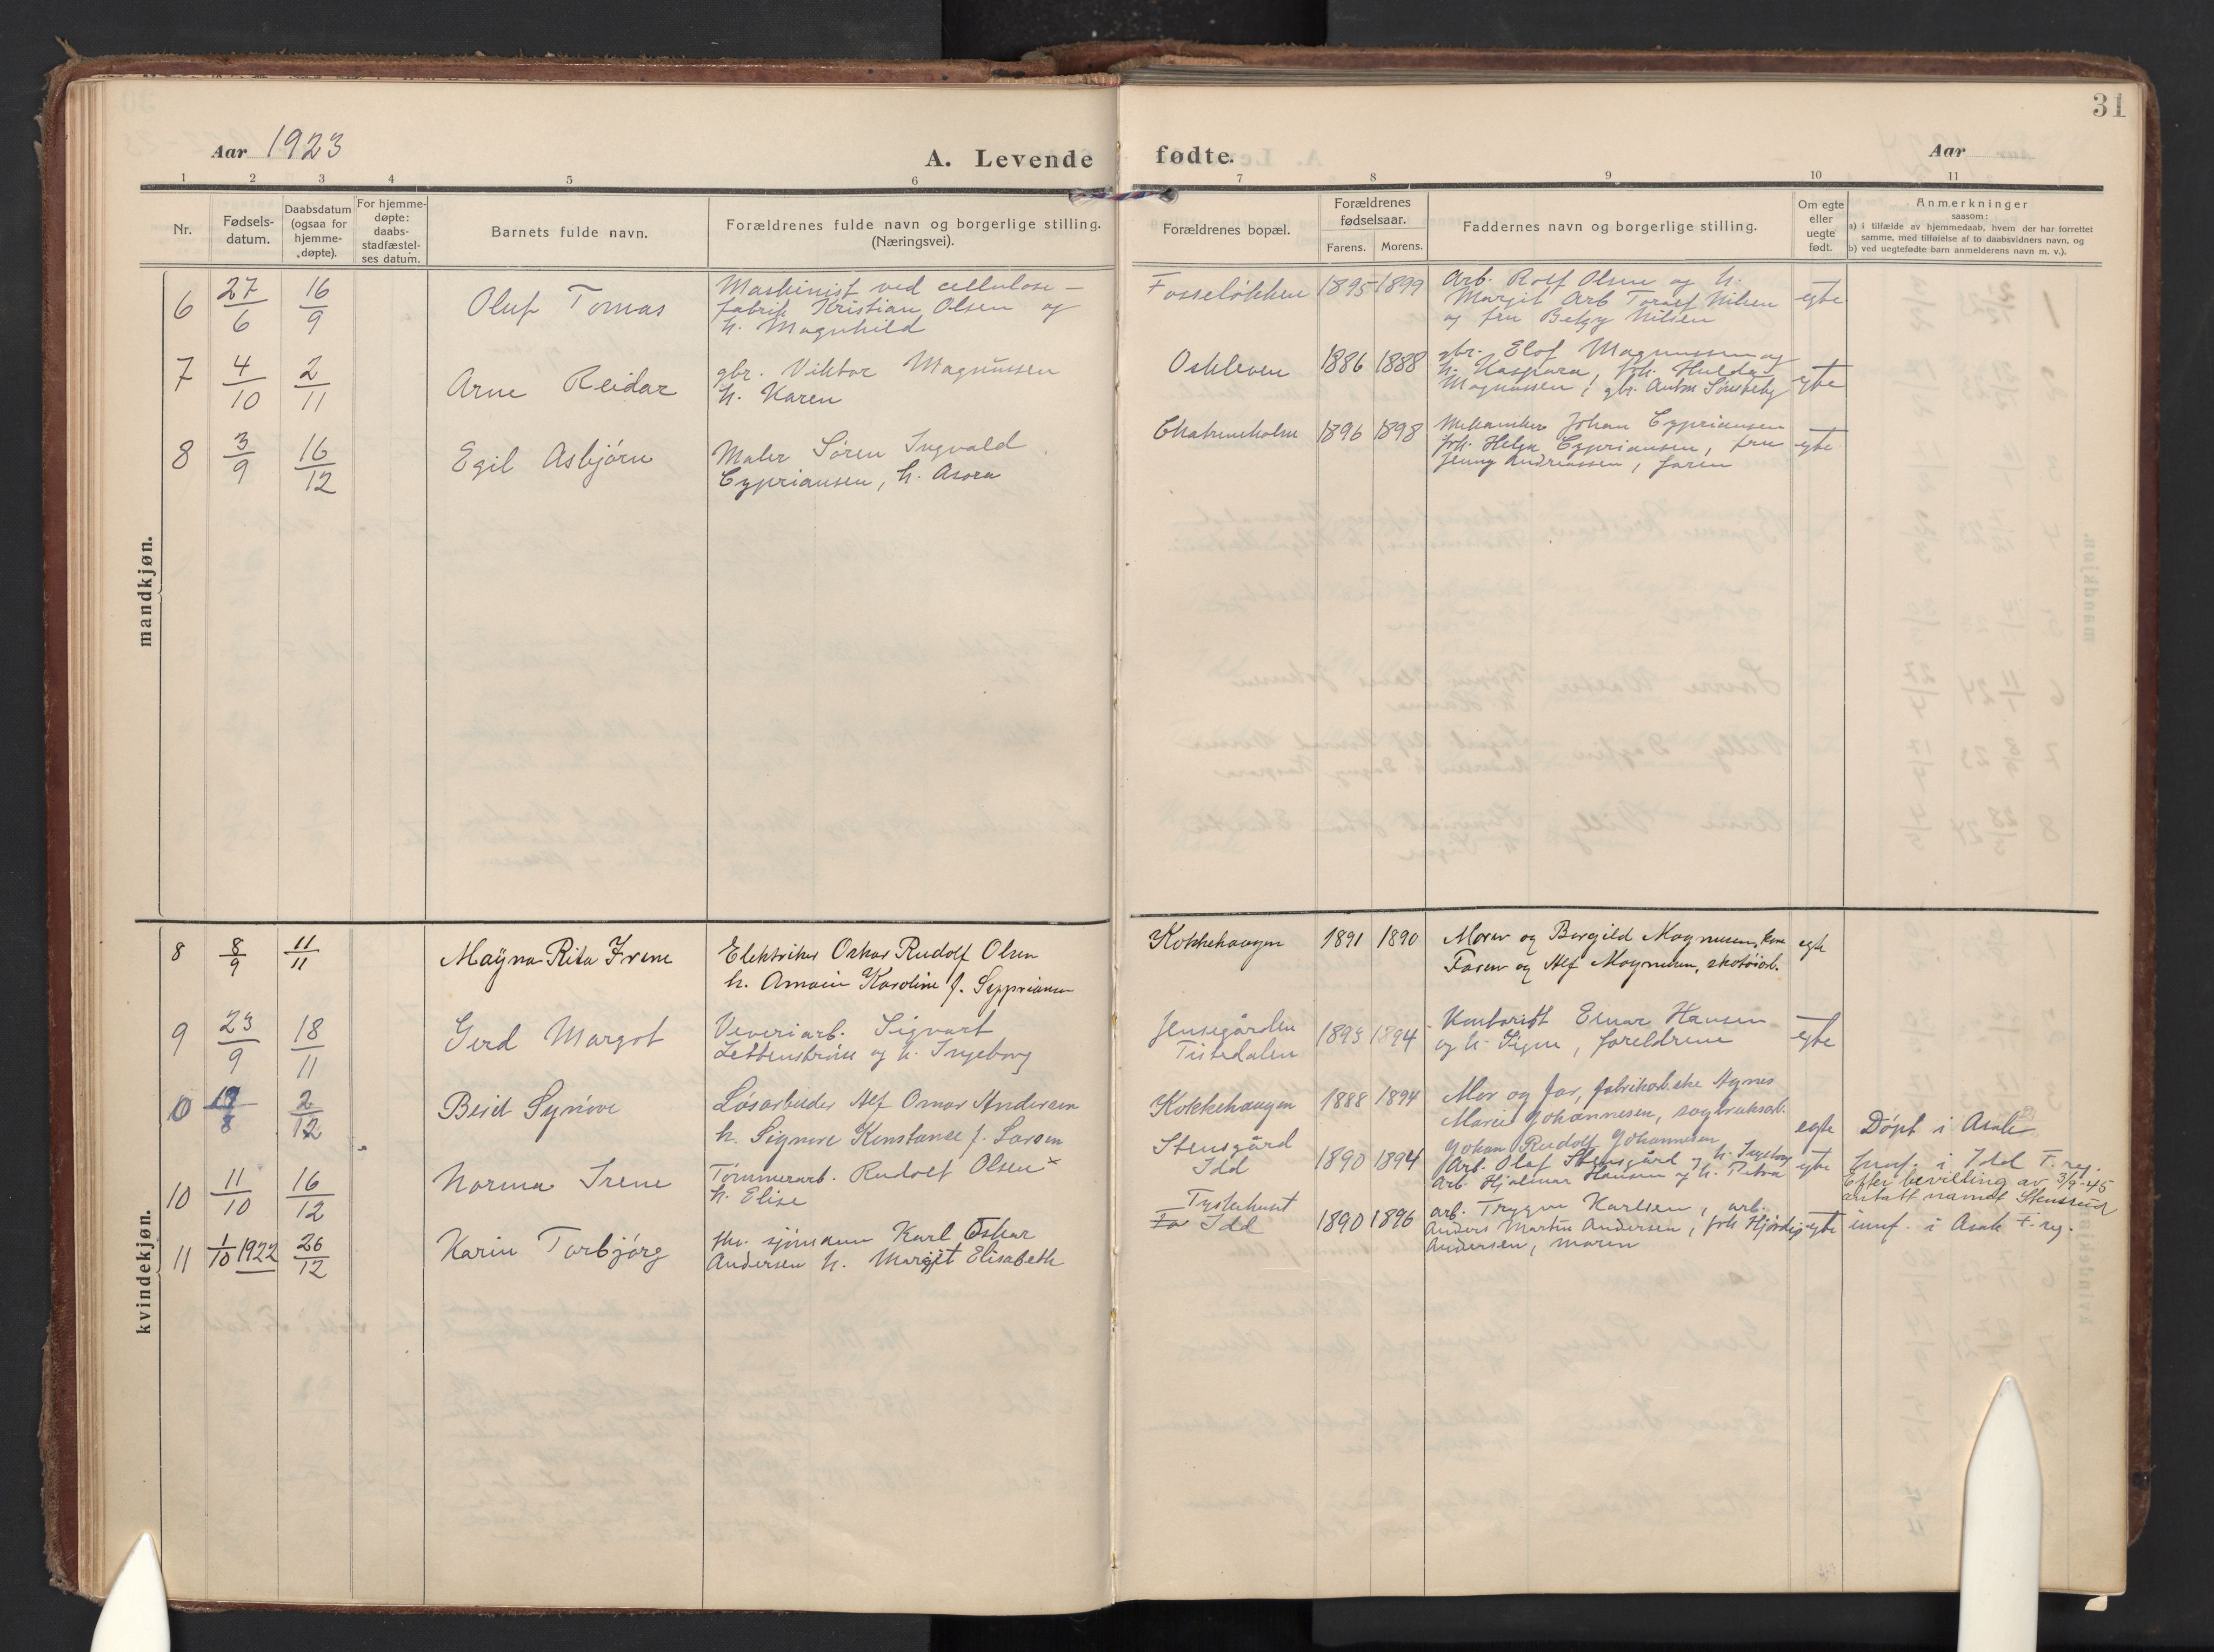 31
Aar 1923
A. Levende fødte.
Aar
1 2 3 4 5 6 7 8 9 10 11
Nr.
Fødsels-
datum.
Daabsdatum
(ogsaa for
hjemme-
døpte).
For hjemme-
døpte:
daabs-
stadfæstel-
ses datum.
Barnets fulde navn.
Forældrenes fulde navn og borgerlige stilling.
(Næringsvei).
Forældrenes bopæl.
Forældrenes
fødselsaar.
Farens. Morens.
Faddernes navn og borgerlige stilling.
Om egte
eller
uegte
født.
Anmerkninger
saasom:
a) i tilfælde av hjemmedaab, hvem der har forrettet
samme, med tilføielse af to daabsvidners navn, og
b) ved uegtefødte barn anmelderens navn m. v.).
mandkjøn.
6 27/6 16/9 Oluf Tomas
Maskinist ved cellulose-
fabrik Kristian Olsen og
h. Magnhild
Fosseløkken 1895 1899
Arb. Rolf Olsen og h.
Margit Arb Toralf Nilsen
og fru Betzy Nilsen
egte
7 4/10 2/11 Arne Reidar
gbr. Viktor Magnussen
h. Karen
Oskleven 1886 1888
gbr. Elof Magnussen og
h. Kaspara, frk. Hulda
Magnussen, gbr. Anton Sønsteby
egte
8 3/9 16/12 Egil Asbjørn
Maler Søren Ingvald
Cypriansen, h. Asora
Chatrineholm 1896 1898
Mekaniker Johan Cypriansen
frk. Helga Cypriansen, fru
Jenny Andreassen, faren
egte
kvindekjøn.
8 8/9 11/11 Mayna Rita Irene
Elektriker Oskar Rudolf Olsen
h. Karoline f.
Kokkehaugen 1891 1890
Moren og Borgild Magnusen, kone
Faren og Alf Magnusen, skotøiarb.
egte
9 23/9 18/11 Gerd Margot
Veveriarb. Sigvart
Zettenstrøm og h. Ingeborg
Jensegården
Tistedalen
1893 1894
Kontorist Einar Hansen
og h. Signe, foreldrene
egte
10 8 2/12 Berit Synnøve
Løsarbeider Alf Omar Andersen
h. Signora Konstance f. Larsen
Kokkehaugen 1888 1894
Mor og far, fabrikarb.ske Agnes
Marie Johannesen, sagbruksarb.
Johan Rudolf Johannesen
egte Døpt i Asak
10 11/10 16/12 Norma Irene
Tømmerarb. Rudolf Olsen x
h. Elise
Stensgård
Idd
1890 1894
Arb. Olaf Stensgård og h. Ingeborg
Arb. Hjalmar Hansen og h. Petra
egte
Innf. i Idd F. reg.
Efter bevilling av 3/9-45
antatt namet Stensrud
11 1/10 1922 26/12 Karin Torbjørg
fhv. sjømann Karl Oskar
Andersen h. Margit Elisabeth
Tyskehuset
Idd
1890 1896
arb. Trygve Karlsen, arb.
Anders Martin Andersen, frk Hjørdis
Andersen, moren
egte innf. i Asak F. reg.